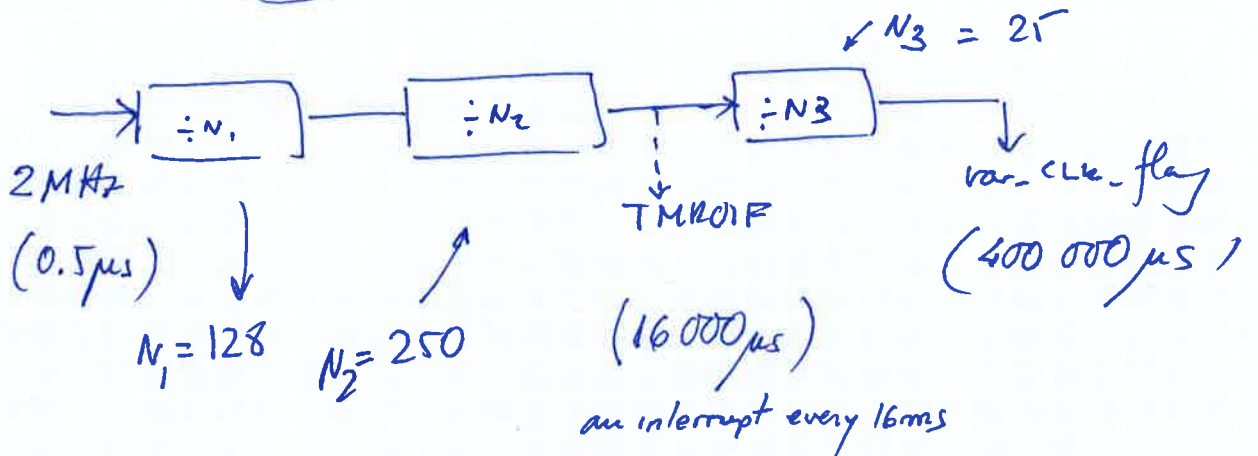 N3 = 25
÷N1
÷N2
÷N3
2MHz
(0.5µs)
TMR0IF
var_CLK_flag
(400 000 µs)
N1 = 128
N2 = 250
(16 000 µs)
an interrupt every 16ms